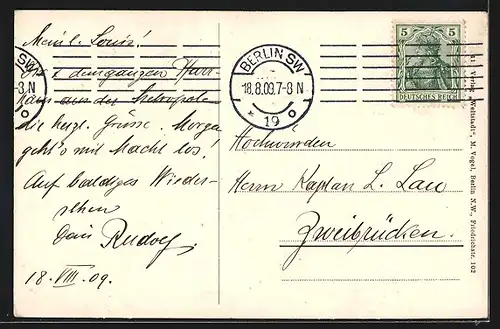 Mein l. Louis!
Dir & dem ganzen Pfarr
haus aus der Metropole
die herzl. Grüsse. Morgen
geht's mit Macht los!
Auf baldiges Wieder-
sehen
Dein Rudolf
18. VIII. 09.
SW
-8 N
BERLIN SW
18.8.09.7-8 N
* 19 o
5 5
DEUTSCHES REICH
Hochwürden
Herrn Kaplan L. Lau
Zweibrücken.
Verlag „Weltstadt“, M. Vogel, Berlin N.W., Friedrichstr. 102